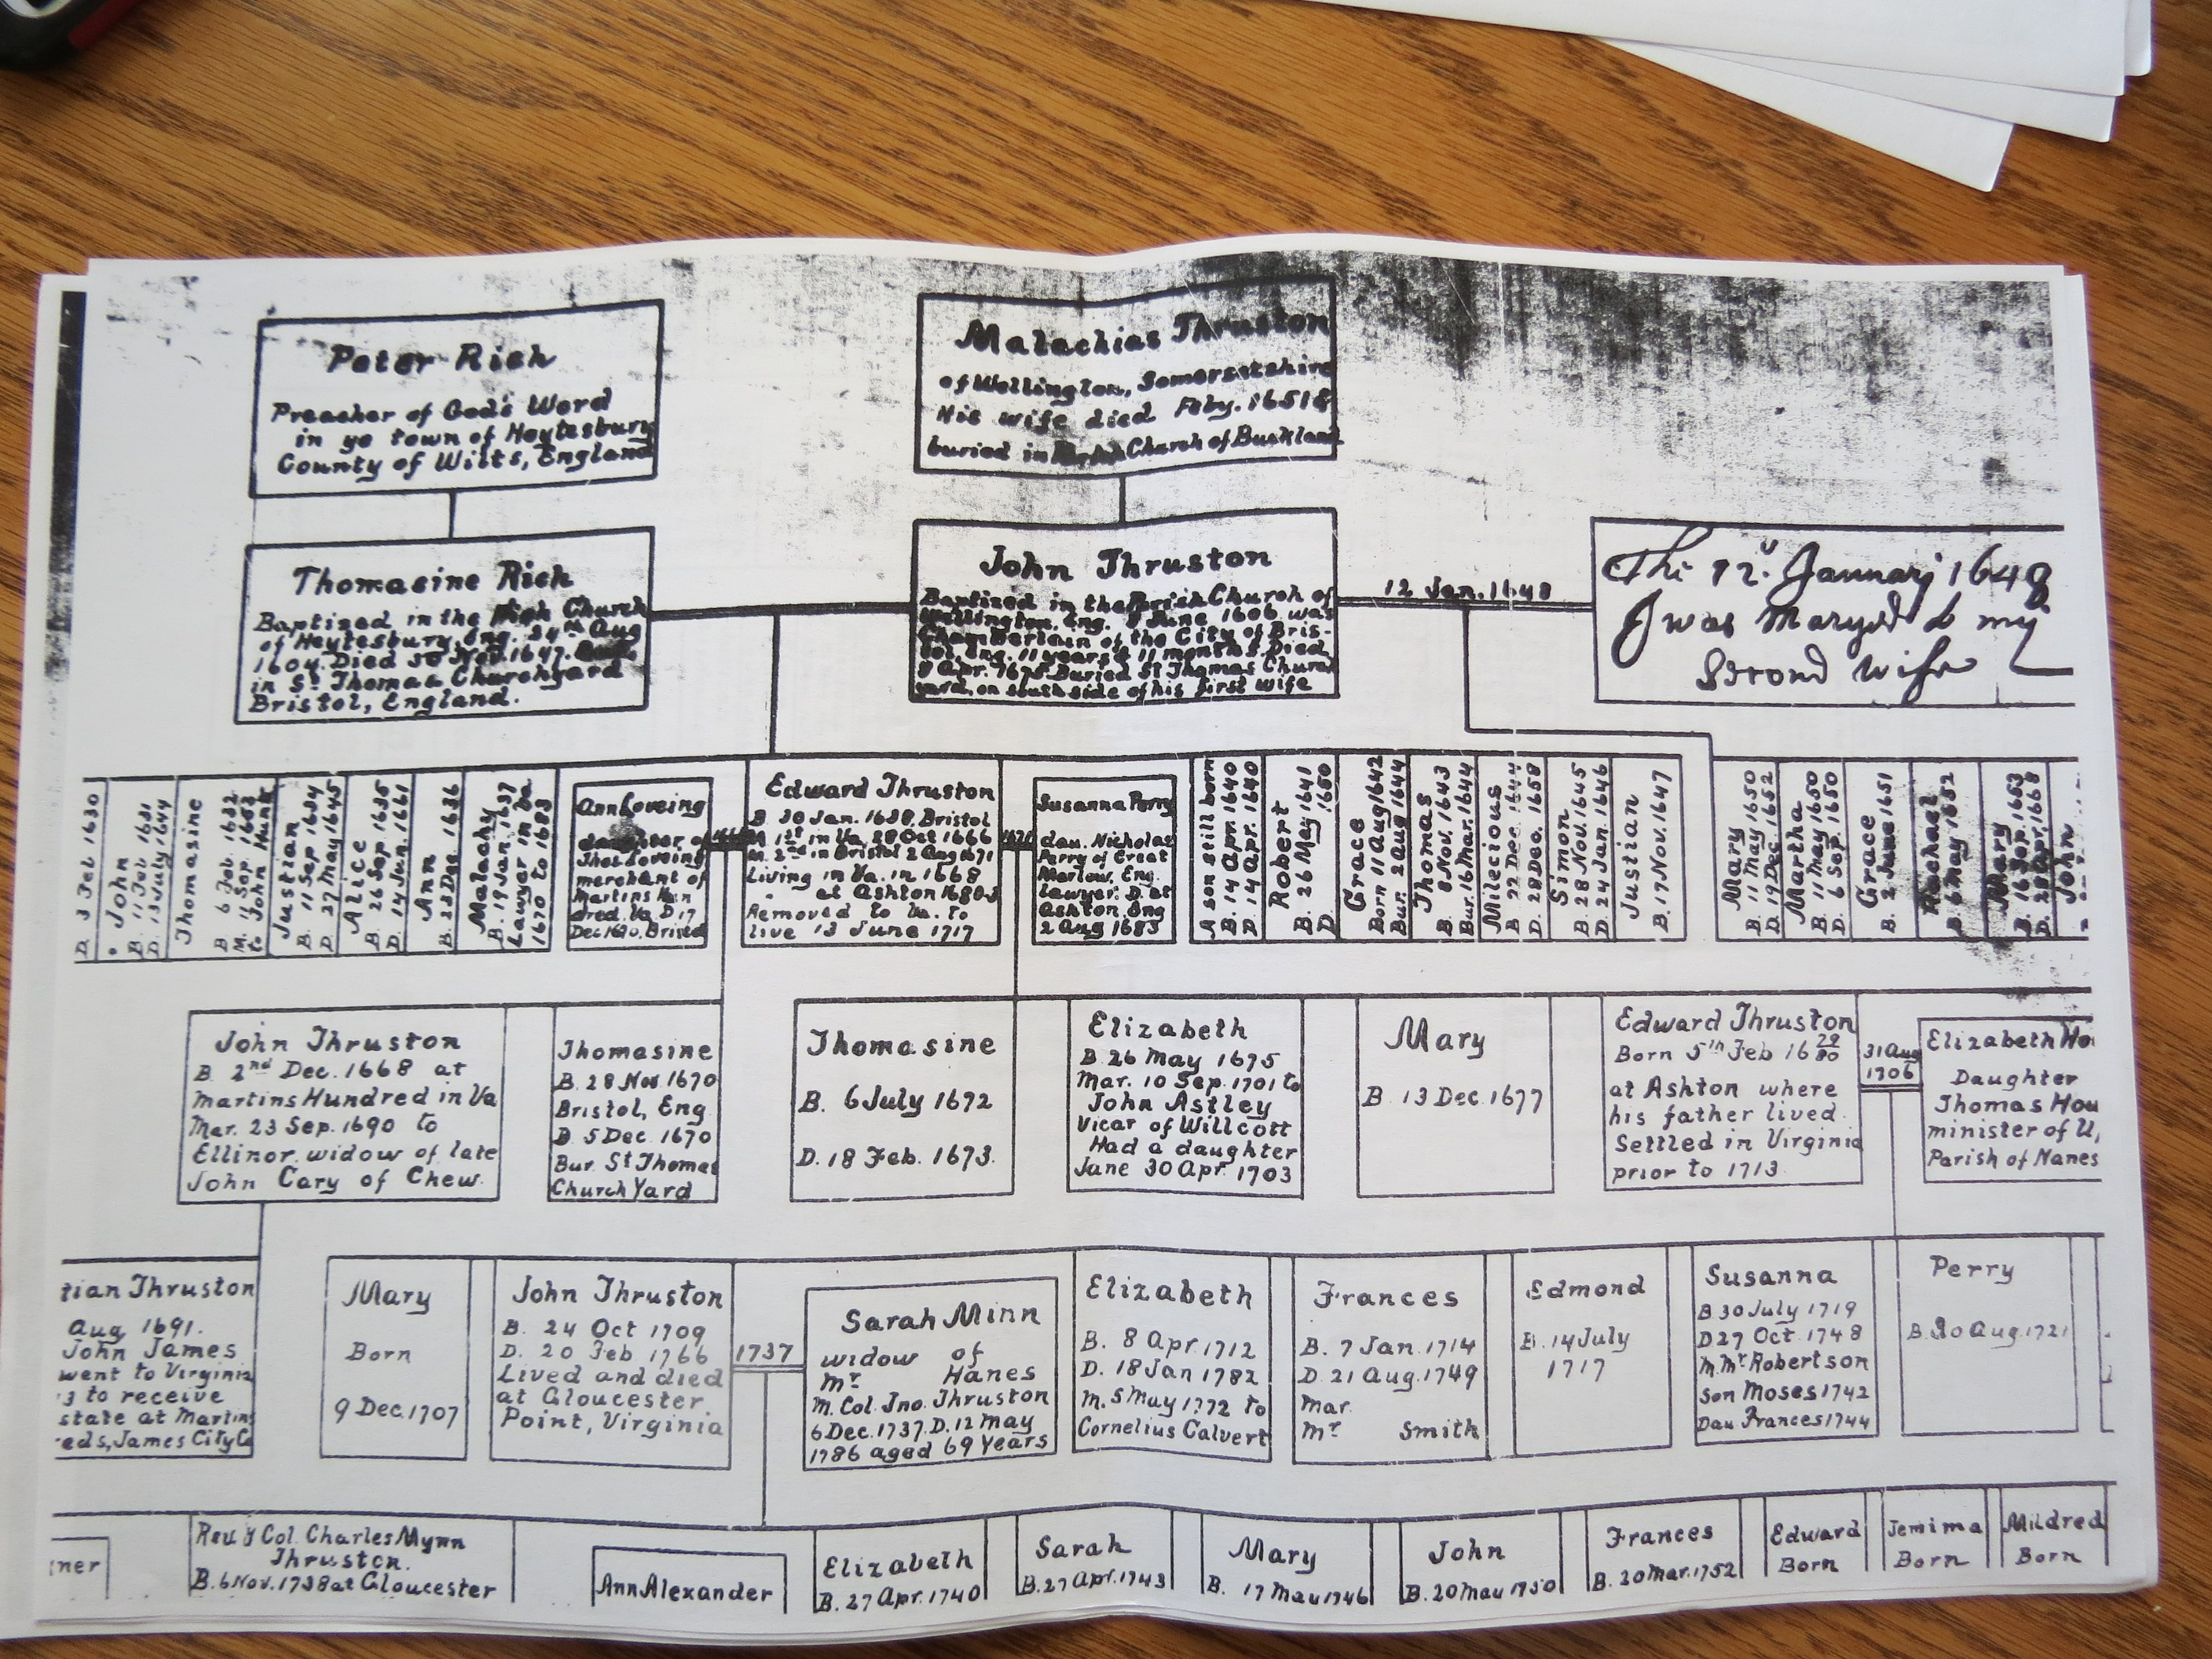 Peter Rich
Preacher of God's Word
in ye town of Heytesbury
County of Wilts, England
Malachias Thruston
of Wellington, Somersetshire
His wife died Feby. 1651
buried in Church of Buckland
Thomasine Rich
Baptized in the Church
of Heytesbury, Eng. 24th Aug
1604. Died 30 Nov. 1647.
in St Thomas Churchyard
Bristol, England.
John Thruston
Baptized in the Parish Church of
Wellington, Eng. 8 June 1606 was
Chamberlain of the City of Bris-
tol, Eng. 11 years & 11 months. Died
8 Apr. 1675. Buried St Thomas Church
yard, on south side of his first wife
12 Jan. 1648
The 12. January 1648
I was Maryed to my
Second Wife
D. 3 Feb 1630
John
B. 11 Feb 1631
D. 13 July 1644
Thomasine
B 6 Feb 1632
M. 11 Sep. 1653
to John Hunt
Justian
B. 11 Sep 1634
D. 27 May 1645
Alice
B. 26 Sep 1635
D. 14 Jun. 1661
Ann
B. 23 Dec 1636
Malachy
B. 19 Jan. 1637
Lawyer in Va.
1670 to 1683
Ann Loveing
daughter of
Thos Loveing
merchant of
Martins Hun
dred. Va. D. 17
Dec 1670. Bristol
Edward Thruston
B 30 Jan. 1638. Bristol
M 1st in Va. 28 Oct 1666
M. 2nd in Bristol 2 Aug 1671
Living in Va. in 1668
at Ashton 1680-3
Removed to Va. to
live 13 June 1717
1671
Susanna Perry
dau. Nicholas
Perry of Great
Marlow, Eng.
Lawyer. D. at
Ashton, Eng
2 Aug 1683
A son still born
B. 14 Apr. 1640
D. 14 Apr. 1640
Robert
B. 26 May 1641
D. 1650
Grace
Born 11 Aug 1642
Bur. 2 Aug 1644
Thomas
B. 8 Nov. 1643
Bur. 16 Mar. 1644
Milecious
B 22 Dec 1644
D. 28 Dec. 1658
Simon
B. 28 Nov. 1645
D. 24 Jan 1646
Justian
B. 17 Nov. 1647
Mary
B. 11 May 1650
D. 19 Dec. 1652
Martha
B. 11 May 1650
D. 6 Sep. 1650
Grace
B. 2 June 1651
Rachael
B 6 May 1652
Mary
B. 16 Sep 1653
D. 28 Apr. 1668
John
John Thruston
B. 2nd Dec. 1668 at
Martins Hundred in Va
Mar. 23 Sep. 1690 to
Ellinor. widow of late
John Cary of Chew.
Thomasine
B. 28 Nov. 1670
Bristol, Eng
D. 5 Dec. 1670
Bur. St Thomas
Church Yard
Thomasine
B. 6 July 1672
D. 18 Feb. 1673.
Elizabeth
B 26 May 1675
Mar. 10 Sep. 1701 to
John Astley
Vicar of Willcott
Had a daughter
Jane 30 Apr. 1703
Mary
B. 13 Dec. 1677
Edward Thruston
Born 5th Feb 16 79/80
at Ashton where
his father lived.
Settled in Virginia
prior to 1713.
31 Aug
1706
Elizabeth Ho
Daughter
Thomas Hou
minister of U,
Parish of Nanes
tian Thruston
Aug 1691.
John James
went to Virginia
3 to receive
state at Martins
eds, James City Co
Mary
Born
9 Dec. 1707
John Thruston
B. 24 Oct 1709
D. 20 Feb 1766
Lived and died
at Gloucester
Point, Virginia
1737
Sarah Minn
widow of
Mr Hanes
M. Col. Jno. Thruston
6 Dec. 1737. D. 12 May
1786 aged 69 Years
Elizabeth
B. 8 Apr. 1712
D. 18 Jan 1782
M. 5 May 1772 to
Cornelius Calvert
Frances
B. 7 Jan. 1714
D. 21 Aug. 1749
Mar.
Mr Smith
Edmond
B. 14 July
1717
Susanna
B 30 July 1719
D 27 Oct. 1748
M. Mr Robertson
Son Moses 1742
Dau Frances 1744
Perry
B. 30 Aug. 1721
ner
Rev & Col. Charles Mynn
Thruston.
B. 6 Nov. 1738 at Gloucester
Ann Alexander
Elizabeth
B. 27 Apr. 1740
Sarah
B. 27 Apr. 1743
Mary
B. 17 May 1746
John
B. 20 May 1750
Frances
B. 20 Mar. 1752
Edward
Born
Jemima
Born
Mildred
Born